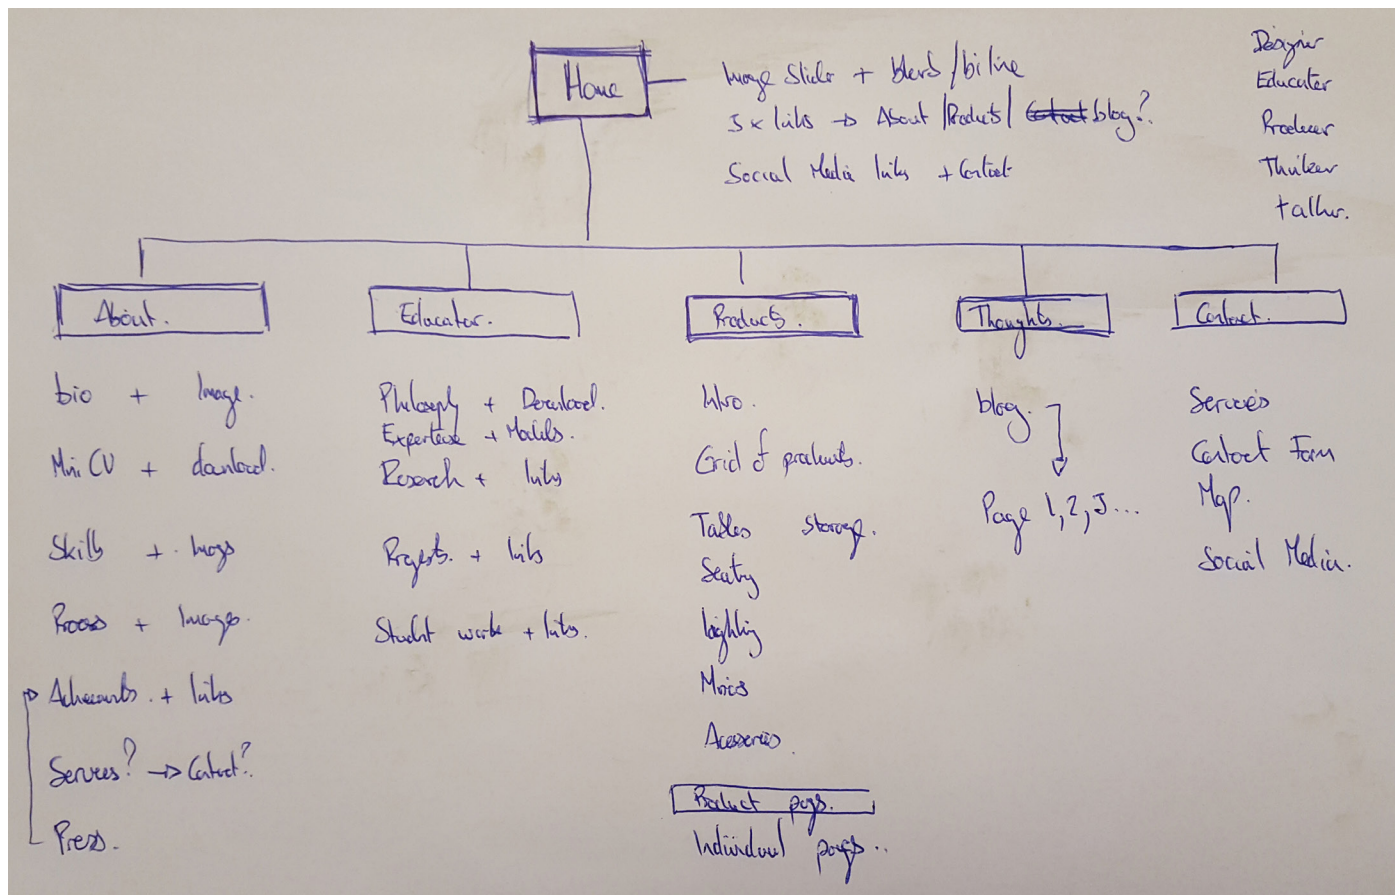 Home
Image Slider + blurb / biline
3 x links → About / Products / Contact blog?
Social Media links + Contact
Designer
Educater
Producer
Thinker
talker.
About.
bio + Image.
Mini CV + download.
Skills + Imags
Process + Images.
+ links
Services? → Contact?
Press.
Educator.
Philosophy + Download.
Expertise + Models.
Research + links
Projects. + links
Student work + links.
Products.
Intro.
Grid of products.
Tables storage.
Seating
lighting
Acesseries.
Product pags.
Individual pags..
Thoughts.
blog.
Page 1, 2, 3...
Contact.
Services
Contact Form
Map.
Social Media.